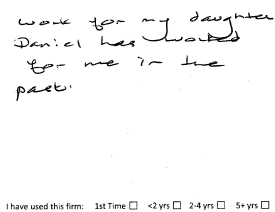 work for my daughter
Daniel has worked
for me in the
past.
I have used this firm: 1st Time ☐ <2 yrs ☐ 2-4 yrs ☐ 5+ yrs ☐